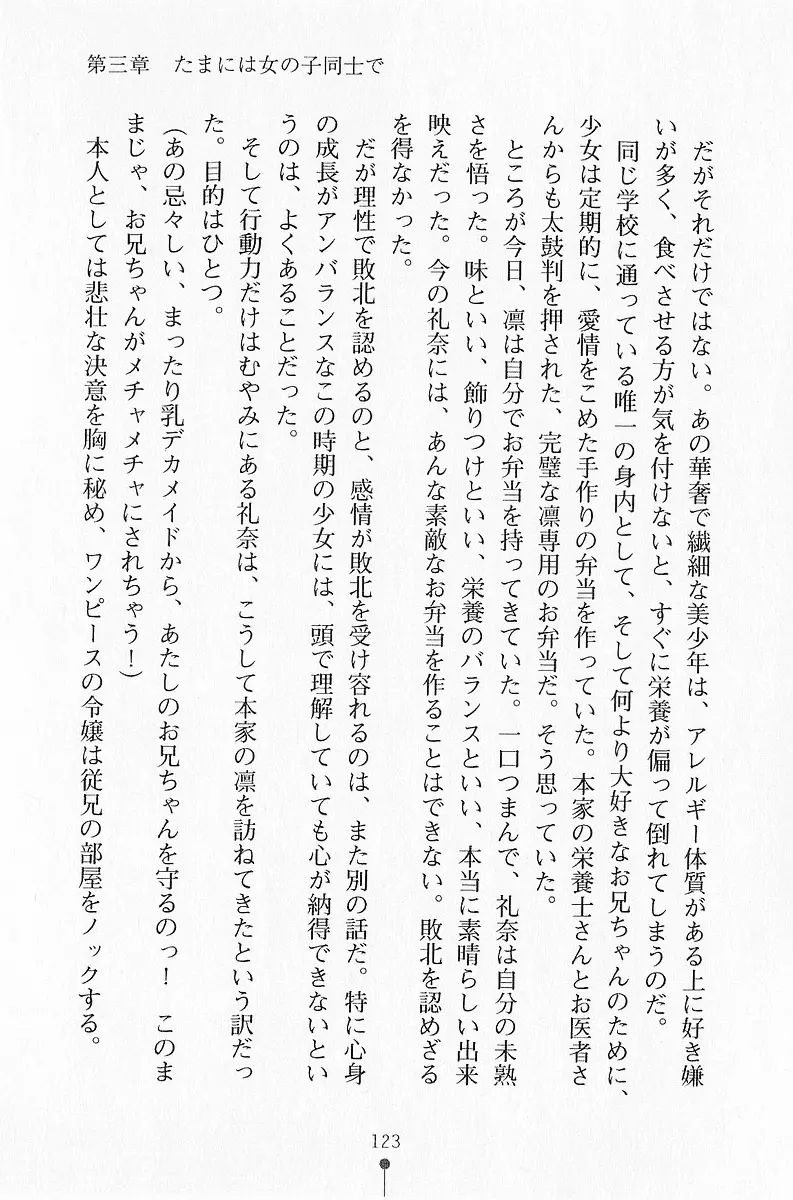 第三章　たまには女の子同士で
だがそれだけではない。あの華奢で繊細な美少年は、アレルギー体質がある上に好き嫌
いが多く、食べさせる方が気を付けないと、すぐに栄養が偏って倒れてしまうのだ。
同じ学校に通っている唯一の身内として、そして何より大好きなお兄ちゃんのために、
少女は定期的に、愛情をこめた手作りの弁当を作っていた。本家の栄養士さんとお医者さ
んからも太鼓判を押された、完璧な凛専用のお弁当だ。そう思っていた。
ところが今日、凛は自分でお弁当を持ってきていた。一口つまんで、礼奈は自分の未熟
さを悟った。味といい、飾りつけといい、栄養のバランスといい、本当に素晴らしい出来
映えだった。今の礼奈には、あんな素敵なお弁当を作ることはできない。敗北を認めざる
を得なかった。
だが理性で敗北を認めるのと、感情が敗北を受け容れるのは、また別の話だ。特に心身
の成長がアンバランスなこの時期の少女には、頭で理解していても心が納得できないとい
うのは、よくあることだった。
そして行動力だけはむやみにある礼奈は、こうして本家の凛を訪ねてきたという訳だっ
た。目的はひとつ。
（あの忌々しい、まったり乳デカメイドから、あたしのお兄ちゃんを守るのっ！　このま
まじゃ、お兄ちゃんがメチャメチャにされちゃう！）
本人としては悲壮な決意を胸に秘め、ワンピースの令嬢は従兄の部屋をノックする。
123